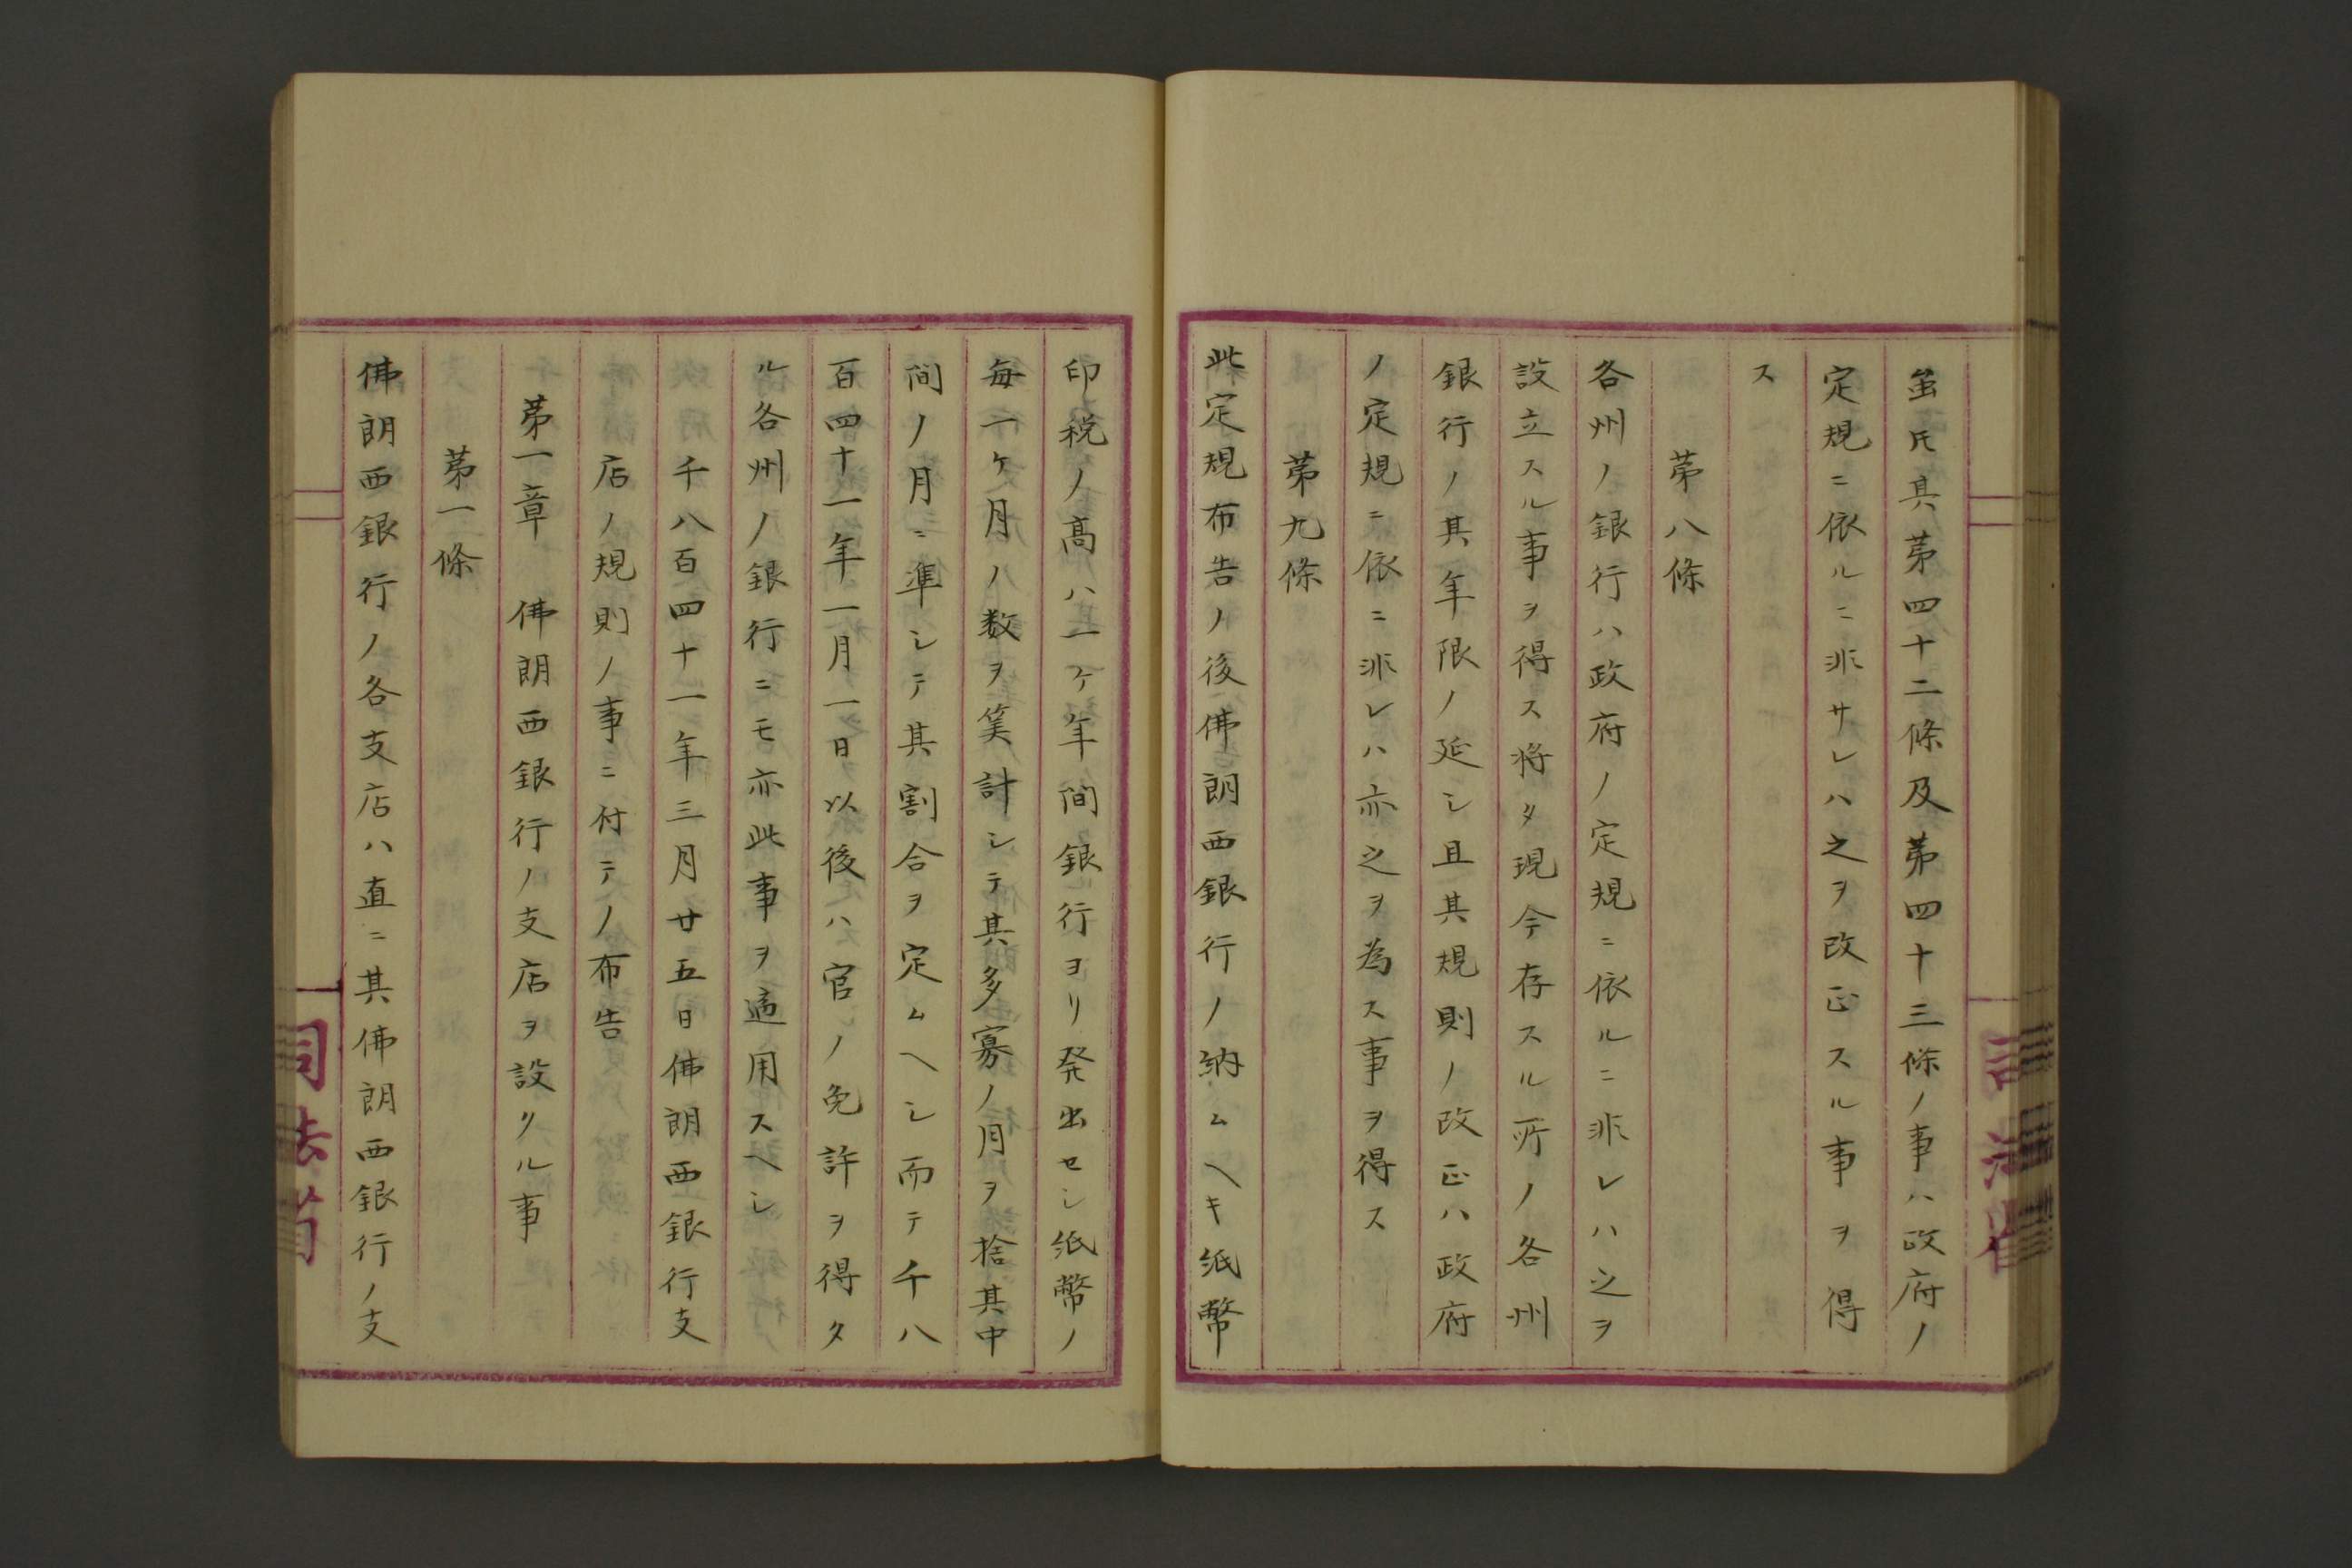 虽𪜈其第四十二條及第四十三條ノ事ハ政府ノ
定規ニ依ルニ非サレハ之ヲ改正スル事ヲ得
ス
第八條
各州ノ銀行ハ政府ノ定規ニ依ルニ非レハ之ヲ
設立スル事ヲ得ス将タ現今存スル所ノ各州
銀行ノ其年限ノ延シ且其規則ノ改正ハ政府
ノ定規ニ依ニ非レハ亦之ヲ為ス事ヲ得ス
第九條
此定規布告ノ後佛朗西銀行ノ納ムヘキ紙幣
印税ノ高ハ一ケ年間銀行ヨリ発出セシ紙幣ノ
毎一ケ月ノ数ヲ筭計シテ其多寡ノ月ヲ捨其中
間ノ月ニ準シテ其割合ヲ定ムヘシ而テ千八
百四十一年一月一日以後ハ官ノ免許ヲ得タ
ル各州ノ銀行ニモ亦此事ヲ適用スヘシ
千八百四十一年三月廿五日佛朗西銀行支
店ノ規則ノ事ニ付テノ布告
第一章　佛朗西銀行ノ支店ヲ設クル事
第一條
佛朗西銀行ノ各支店ハ直ニ其佛朗西銀行ノ支
司法省